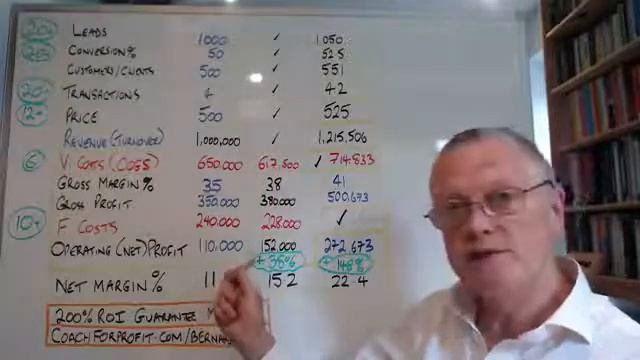 LEADS 1000 ✓ 1050
CONVERSION% 50 ✓ 52.5
CUSTOMERS/CLIENTS 500 ✓ 551
TRANSACTIONS 4 ✓ 4.2
12+ PRICE 500 ✓ 525
REVENUE (TURNOVER) 1,000,000 ✓ 1,215,506
V. COSTS (COGS) 650,000 617,500 ✓ 714,833
GROSS MARGIN% 35 38 41
GROSS PROFIT 350,000 380,000 500,673
10+ F COSTS 240,000 228,000 ✓
OPERATING (NET) PROFIT 110,000 152,000 272,673
+ 38% + 148%
NET MARGIN % 11 15.2 22.4
200% ROI GUARANTEE
COACHFORPROFIT.COM/BERNA